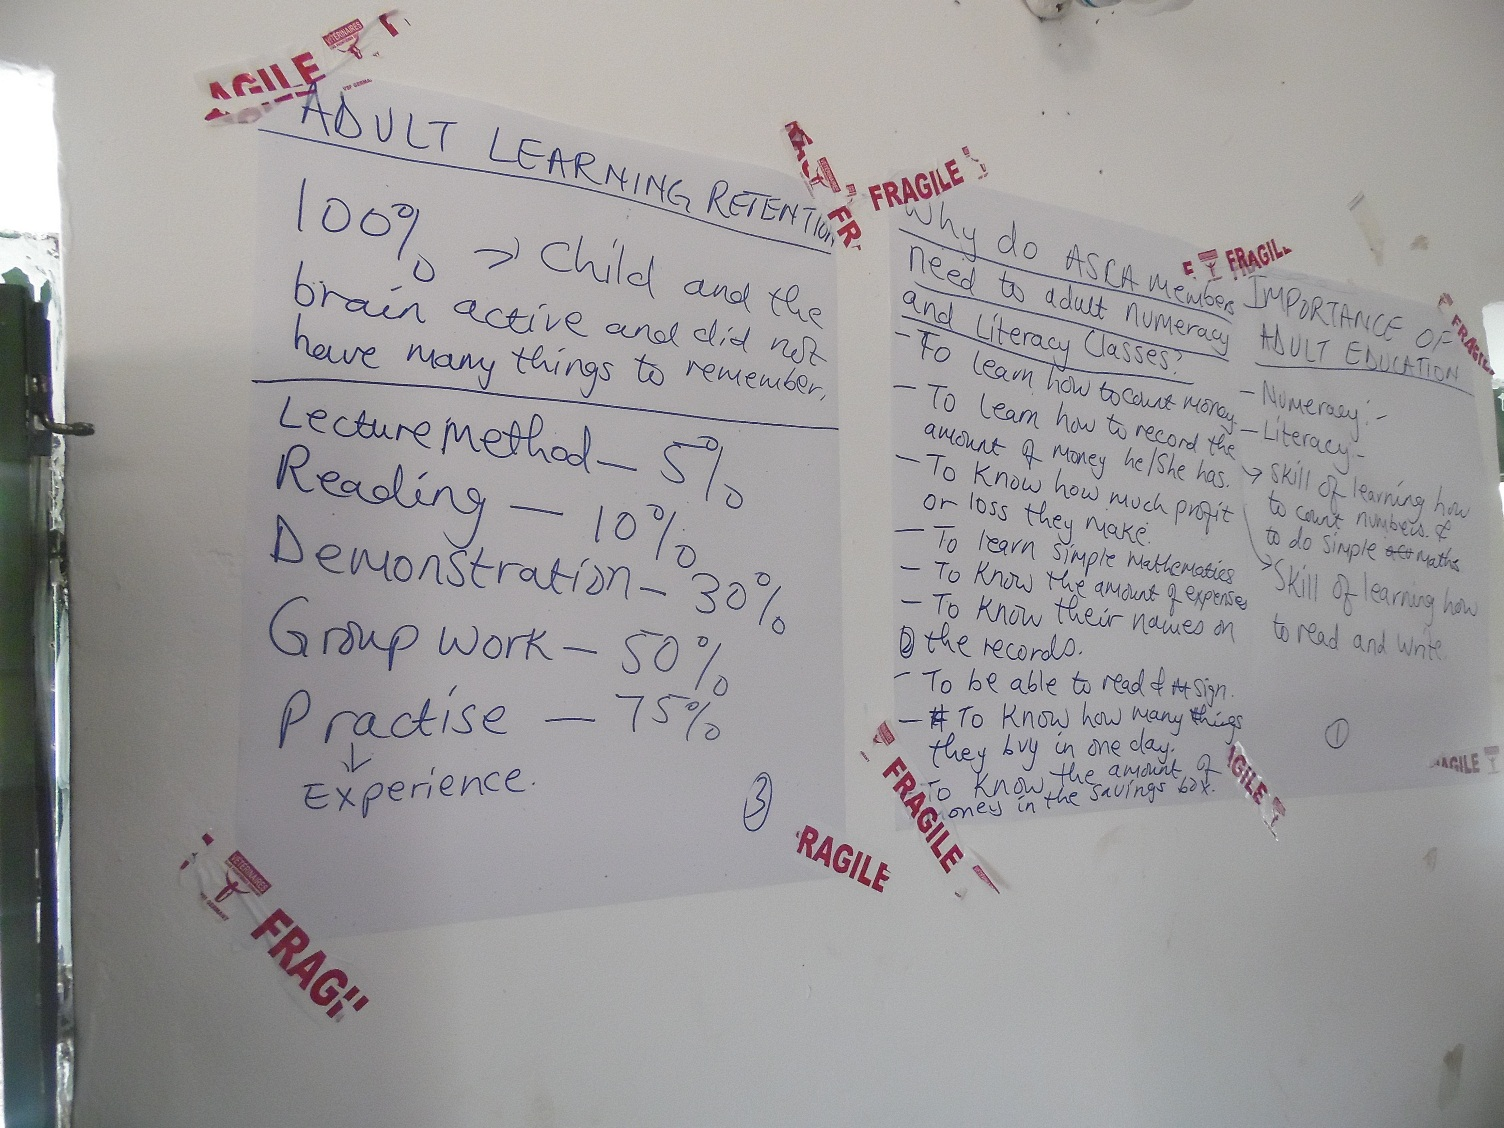 ADULT LEARNING RETENTION
100% → Child and the
brain active and did not
have many things to remember.
Lecture Method — 5%
Reading — 10%
Demonstration — 30%
Group work — 50%
Practise — 75%
↓
Experience.
3
Why do ASCA members
need to adult numeracy
and Literacy Classes?
- To learn how to count money
- To learn how to record the
amount of money he/she has.
- To Know how much profit
or loss they make.
- To learn simple mathematics
- To Know the amount of expenses
- To Know their names on
the records.
- To be able to read & sign.
- To Know how many things
they buy in one day.
To Know the amount of
oney in the savings box.
2
IMPORTANCE OF
ADULT EDUCATION
- Numeracy:-
- Literacy-
→ Skill of learning how
to count numbers &
to do simple maths
→ Skill of learning how
to read and write.
1
AGILE
FRAGILE
FR
FRAGIL
FRAGILE
FRAGILE
RAGILE
AGILE
AGILE
FRAGI